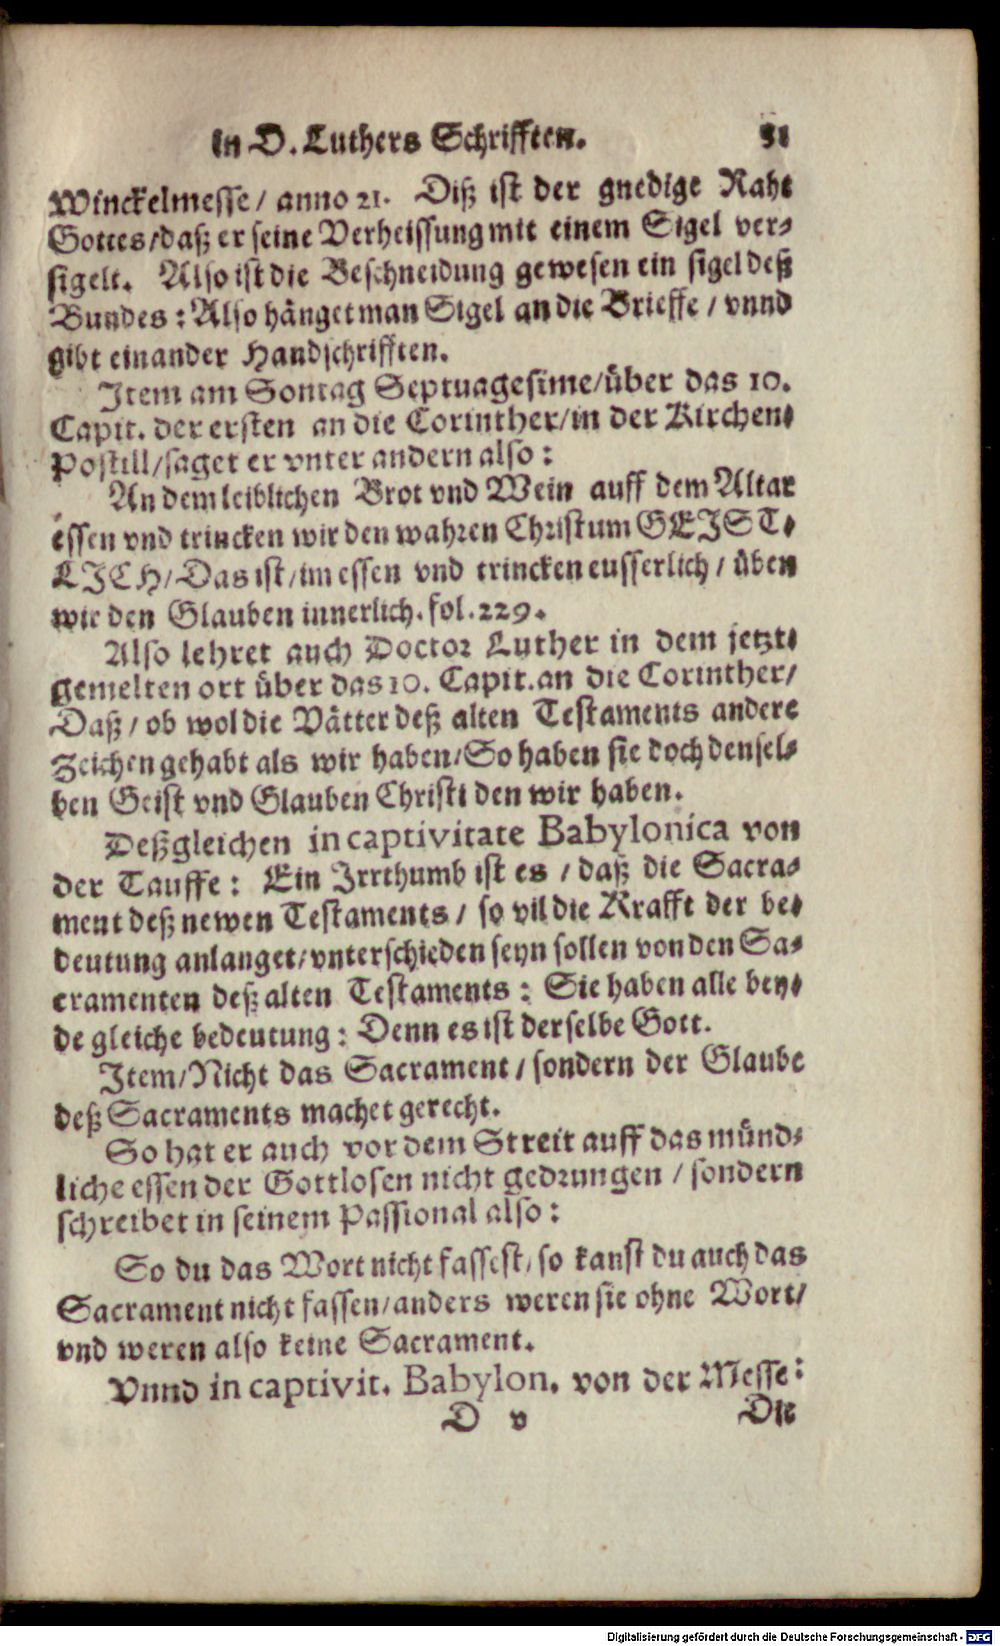 in D. Luthers Schrifften. 51
Winckelmesse / anno 21. Diß ist der gnedige Raht
Gottes / daß er seine Verheissung mit einem Sigel ver-
sigelt. Also ist die Beschneidung gewesen ein sigel deß
Bundes : Also hänget man Sigel an die Brieffe / vnnd
gibt einander Handschrifften.
Item am Sontag Septuagesime / über das 10.
Capit. der ersten an die Corinther / in der Kirchen-
Postill / saget er vnter andern also :
An dem leiblichen Brot vnd Wein auff dem Altar
essen vnd trincken wir den wahren Christum GEIST-
LICH / Das ist / im essen vnd trincken eusserlich / üben
wir den Glauben innerlich. fol. 229.
Also lehret auch Doctor Luther in dem jetzt-
gemelten ort über das 10. Capit. an die Corinther /
Daß / ob wol die Vätter deß alten Testaments andere
Zeichen gehabt als wir haben / So haben sie doch densel-
ben Geist vnd Glauben Christi den wir haben.
Deßgleichen in captivitate Babylonica von
der Tauffe : Ein Irrthumb ist es / daß die Sacra-
ment deß newen Testaments / so vil die Krafft der be-
deutung anlanget / vnterschieden seyn sollen von den Sa-
cramenten deß alten Testaments : Sie haben alle bey-
de gleiche bedeutung : Denn es ist derselbe Gott.
Item / Nicht das Sacrament / sondern der Glaube
deß Sacraments machet gerecht.
So hat er auch vor dem Streit auff das münd-
liche essen der Gottlosen nicht gedrungen / sondern
schreibet in seinem Passional also :
So du das Wort nicht fassest, so kanst du auch das
Sacrament nicht fassen / anders weren sie ohne Wort /
vnd weren also keine Sacrament.
Vnnd in captivit. Babylon. von der Messe :
D v Die
Digitalisierung gefördert durch die Deutsche Forschungsgemeinschaft - DFG